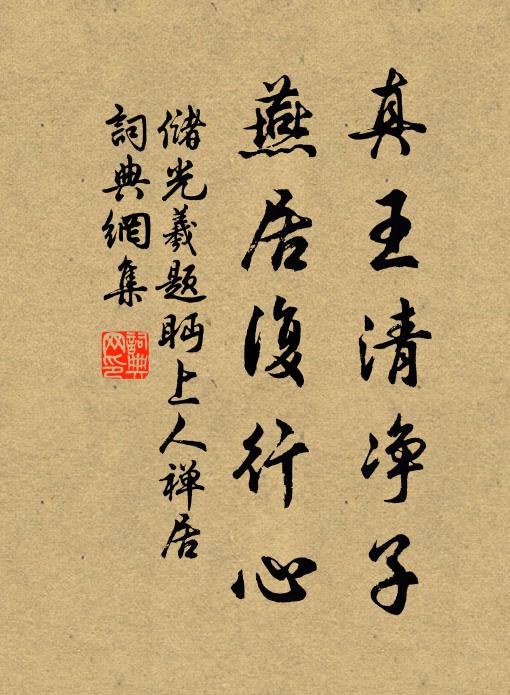 真王清净子
燕居復行心
儲光羲題眄上人禅居
詞典網集
詞典網印